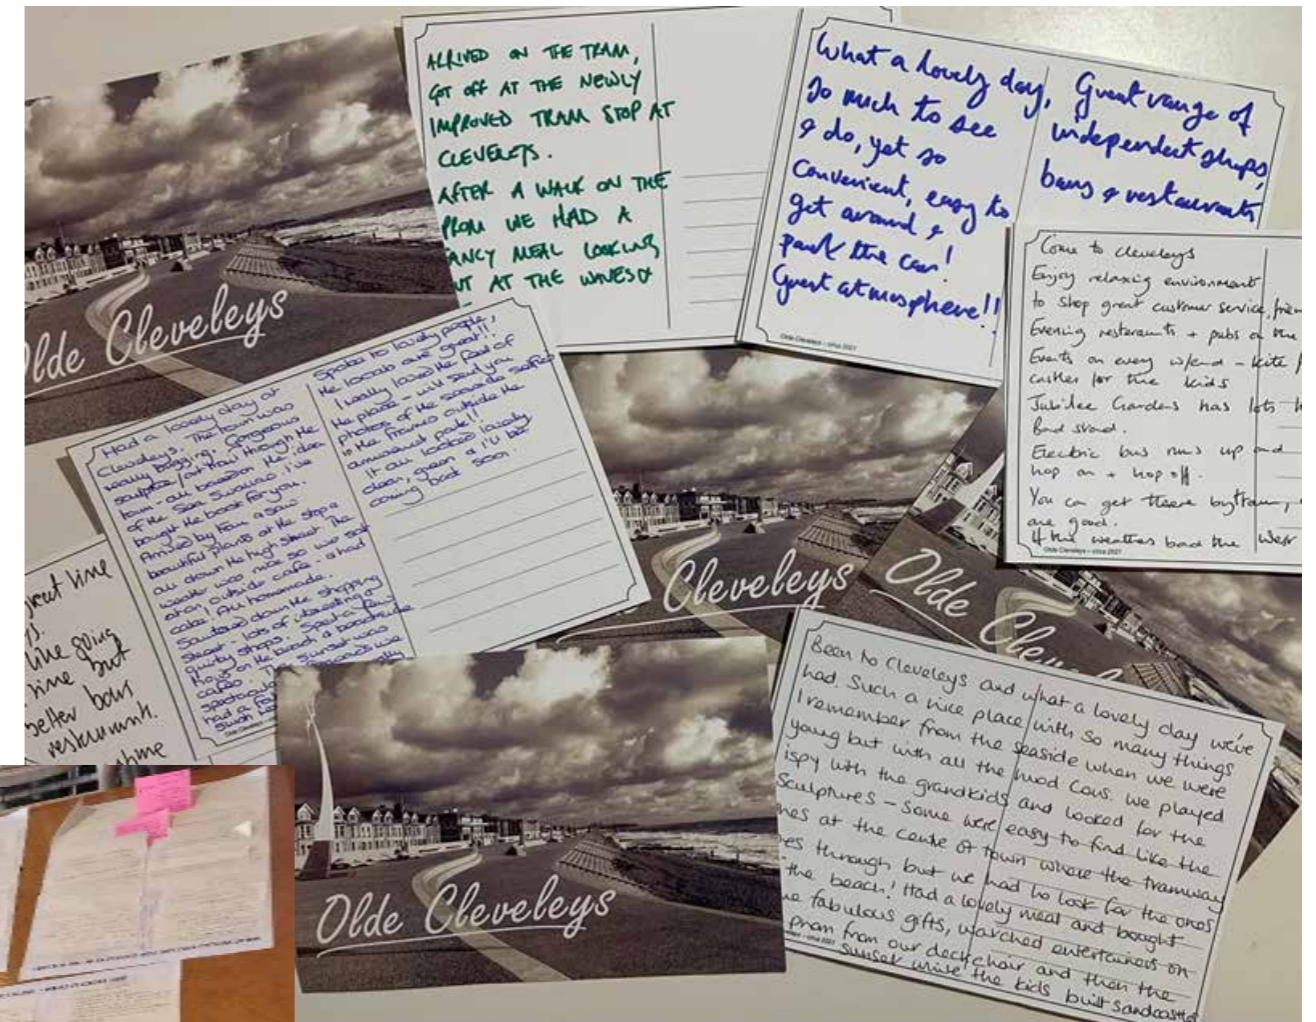 ARRIVED ON THE TRAM,
GOT OFF AT THE NEWLY
IMPROVED TRAM STOP AT
CLEVELEYS.
AFTER A WALK ON THE
PROM WE HAD A
ANCY MEAL LOOKING
UT AT THE WAVES
What a lovely day,
So much to see
& do, yet so
convenient, easy to
get around &
park the car!
Great atmosphere!!
Great range of
independent shops,
bars & restaurants
Olde Cleveleys - circa 2021
Come to cleveleys
Enjoy relaxing environment
to shop great customer service,
Evening restaraunts + pubs on the
Events on every w/end - kite
castles for the kids
Jubilee Gardens has lots
Band stand.
Electric bus runs up and
hop on + hop off.
You can get there by tram,
are good.
If the weathers bad the West
Olde Cleveleys - circa 2021
lde Cleveleys
Had a lovely day at
Cleveleys. The town was
really buzzing. Gorgeous
sculpture/art trail through the
town - all based on the idea
of the Sea Swallow. I've
bought the book for you.
Arrived by tram & saw
beautiful plants at the stop &
all down the high street. The
weather was nice so we sat
at an outside café - & had
cake, all homemade.
Sauntered down the shopping
street, lots of interesting &
quirky shops. Spent a few
hours on the beach & beachside
cafés. The sunset was
spectacular
had a
Spoke to lovely people,
the locals are great!!
I really loved the feel of
the place - will send you
photos of the seaside selfies
in the frames outside the
amusement park!!
It all looked lovely
clean, green & I'll be
coming back soon.
great time
ys.
like going
time but
better bars
restaurants.
Cleveleys
Olde Cleveleys
Olde Cleveleys
Been to Cleveleys and what a lovely day we've
had. Such a nice place with so many things
I remember from the seaside when we were
young but with all the mod cons. We played
ispy with the grandkids and looked for the
sculptures - some were easy to find like the
nes at the centre of town where the tramway
es through but we had to look for the ones
the beach! Had a lovely meal and bought
e fabulous gifts, watched entertainers on
prom from our deckchair, and then the
sunset while the kids built sandcastles